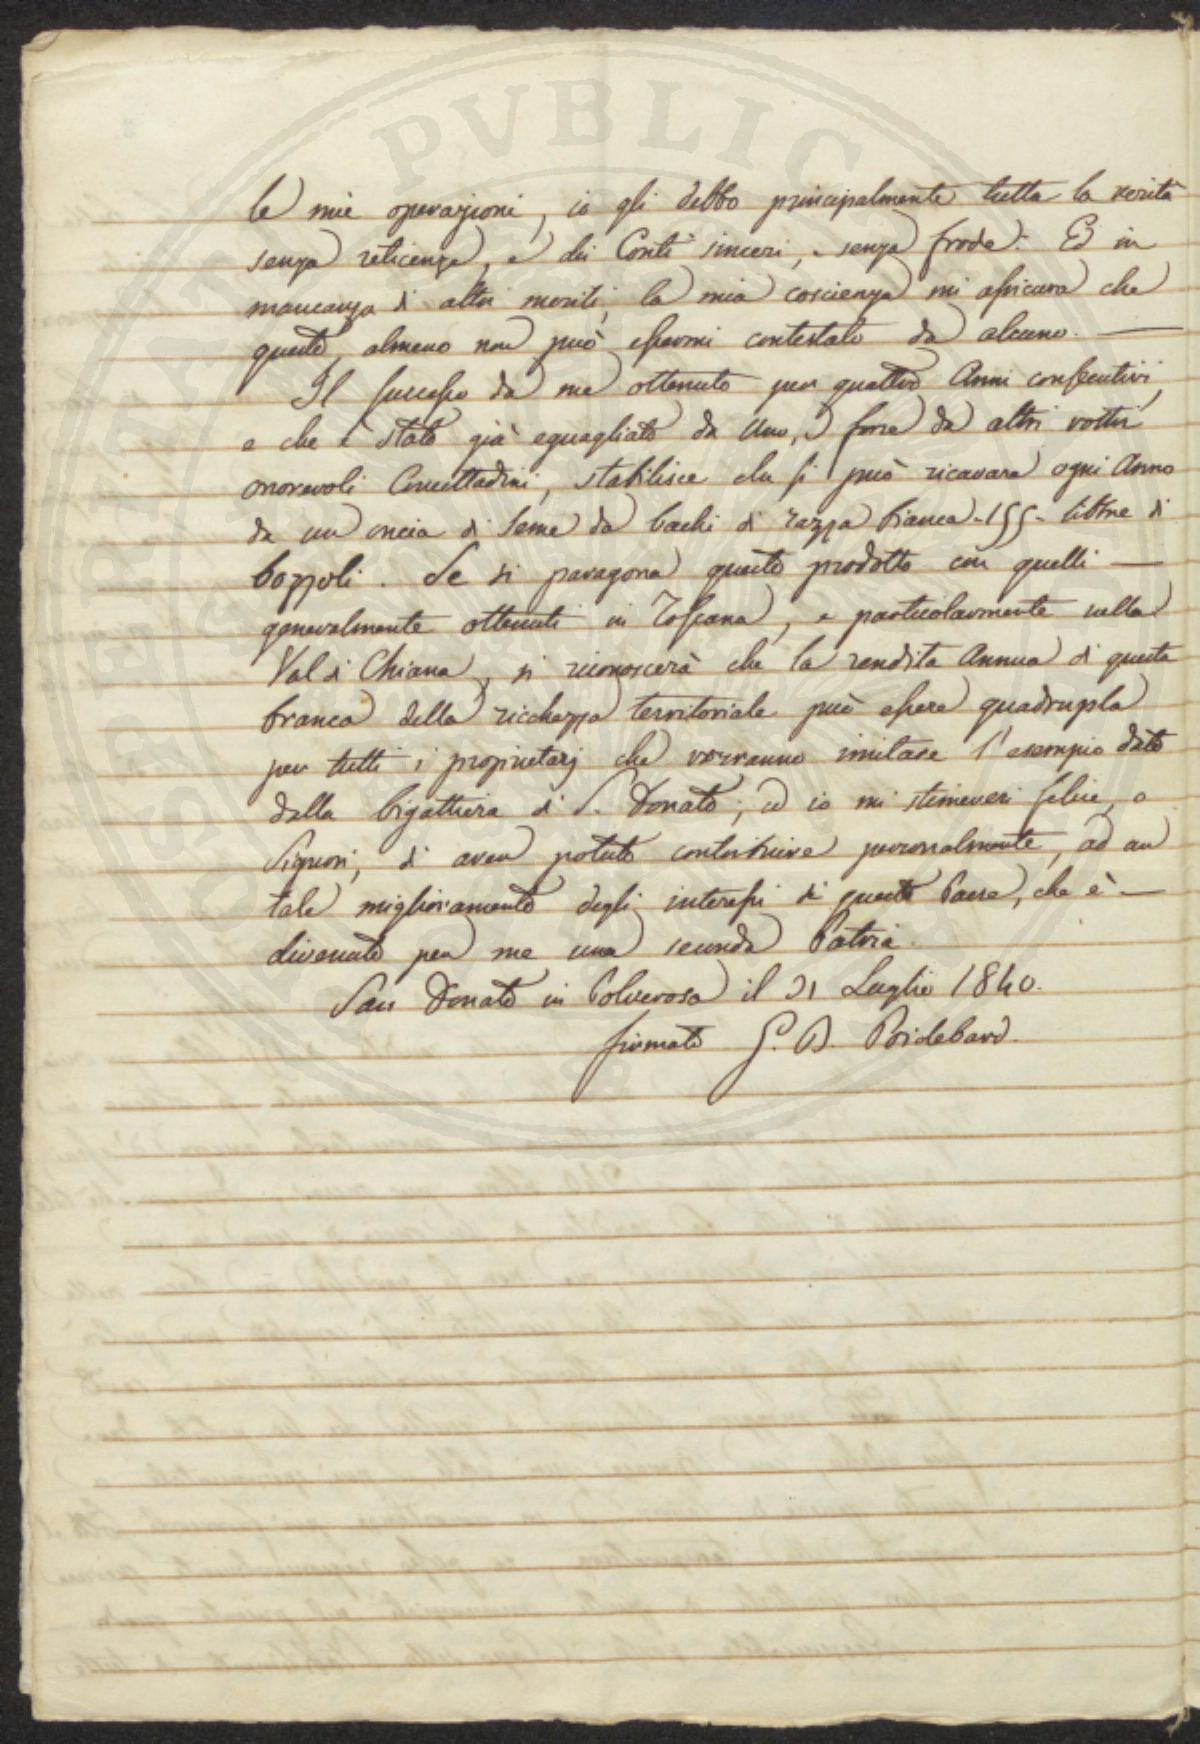 le mie operazioni, io gli debbo principalmente tutta la verità
senza reticenze, e dei Conti sinceri, e senza frode. Ed in
mancanza di altri meriti, la mia coscienza mi assicura che
questo, almeno non può essermi contestato da alcuno.
Il successo da me ottenuto per quattro Anni consecutivi,
e che è stato già eguagliato da Uno, e forse da altri vostri
onorevoli Concittadini, stabilisce che si può ricavare ogni Anno
da un oncia di Seme da bachi di razza bianca - 155 - libbre di
bozzoli. Se si paragona questo prodotto con quelli —
generalmente ottenuti in Toscana, e particolarmente nella
Val di Chiana, si riconoscerà che la rendita Annua di questa
branca della ricchezza territoriale può essere quadrupla
per tutti i proprietarj che vorranno imitare l'esempio dato
dalla bigattiera di S. Donato; ed io mi stimerei felice, o
Signori, di aver potuto contribuire personalmente, ad un
tale miglioramento degli interessi di questo Paese, che è —
divenuto per me una seconda Patria.
San Donato in Polverosa il 21 Luglio 1840.
firmato G. B. Bridebard.
PVBLIC